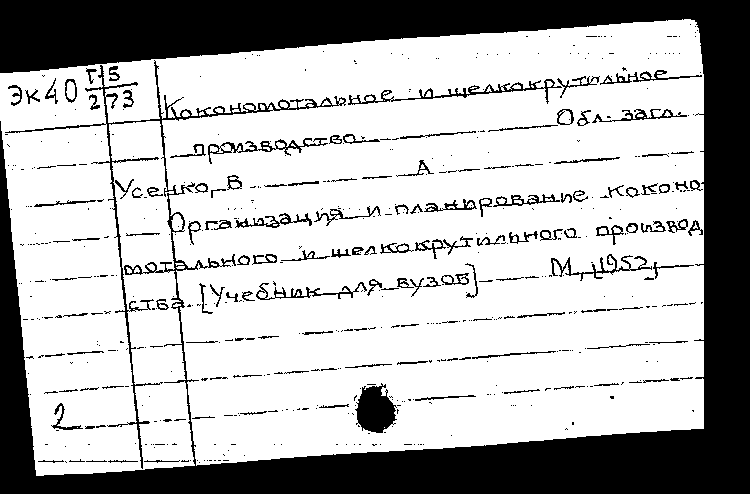 Эк40 Г-5
2 73
Кокономотальное и шелкокрутильное
производство. Обл. загл.
Усенко, В А
Организация и планирование коконо
мотального и шелкокрутильного производ
ства. [Учебник для вузов] М., [1952]
2